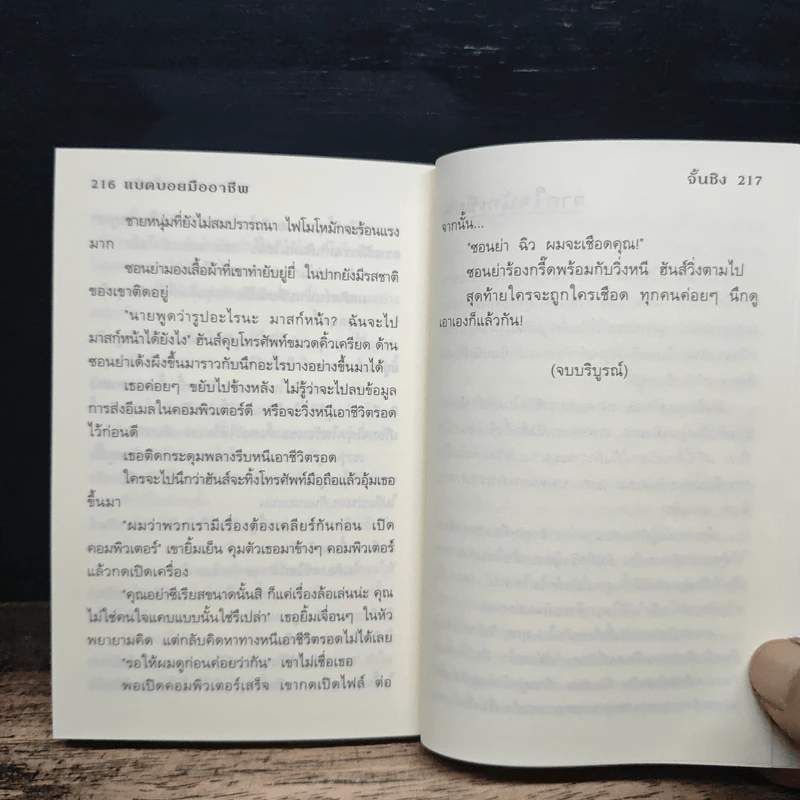 216 แบดบอยมืออาชีพ
ชายหนุ่มที่ยังไม่สมปรารถนา ไฟโมโหมักจะร้อนแรง
มาก
ซอนย่ามองเสื้อผ้าที่เขาทำยับยู่ยี่ ในปากยังมีรสชาติ
ของเขาติดอยู่
"นายพูดว่ารูปอะไรนะ มาสก์หน้า? ฉันจะไป
มาสก์หน้าได้ยังไง" ฮันส์คุยโทรศัพท์ขมวดคิ้วเครียด ด้าน
ซอนย่าเด้งผึงขึ้นมาราวกับนึกอะไรบางอย่างขึ้นมาได้
เธอค่อยๆ ขยับไปข้างหลัง ไม่รู้ว่าจะไปลบข้อมูล
การส่งอีเมลในคอมพิวเตอร์ดี หรือจะวิ่งหนีเอาชีวิตรอด
ไว้ก่อนดี
เธอติดกระดุมพลางรีบหนีเอาชีวิตรอด
ใครจะไปนึกว่าฮันส์จะทิ้งโทรศัพท์มือถือแล้วอุ้มเธอ
ขึ้นมา
"ผมว่าพวกเรามีเรื่องต้องเคลียร์กันก่อน เปิด
คอมพิวเตอร์" เขายิ้มเย็น คุมตัวเธอมาข้างๆ คอมพิวเตอร์
แล้วกดเปิดเครื่อง
"คุณอย่าซีเรียสขนาดนั้นสิ ก็แค่เรื่องล้อเล่นน่ะ คุณ
ไม่ใช่คนใจแคบแบบนั้นใช่รึเปล่า" เธอยิ้มเจื่อนๆ ในหัว
พยายามคิด แต่กลับคิดหาทางหนีเอาชีวิตรอดไม่ได้เลย
"รอให้ผมดูก่อนค่อยว่ากัน" เขาไม่เชื่อเธอ
พอเปิดคอมพิวเตอร์เสร็จ เขากดเปิดไฟล์ ต่อ
จั้นชิง 217
จากนั้น...
"ซอนย่า ฉิว ผมจะเชือดคุณ!"
ซอนย่าร้องกรี๊ดพร้อมกับวิ่งหนี ฮันส์วิ่งตามไป
สุดท้ายใครจะถูกใครเชือด ทุกคนค่อยๆ นึกดู
เอาเองก็แล้วกัน!
(จบบริบูรณ์)